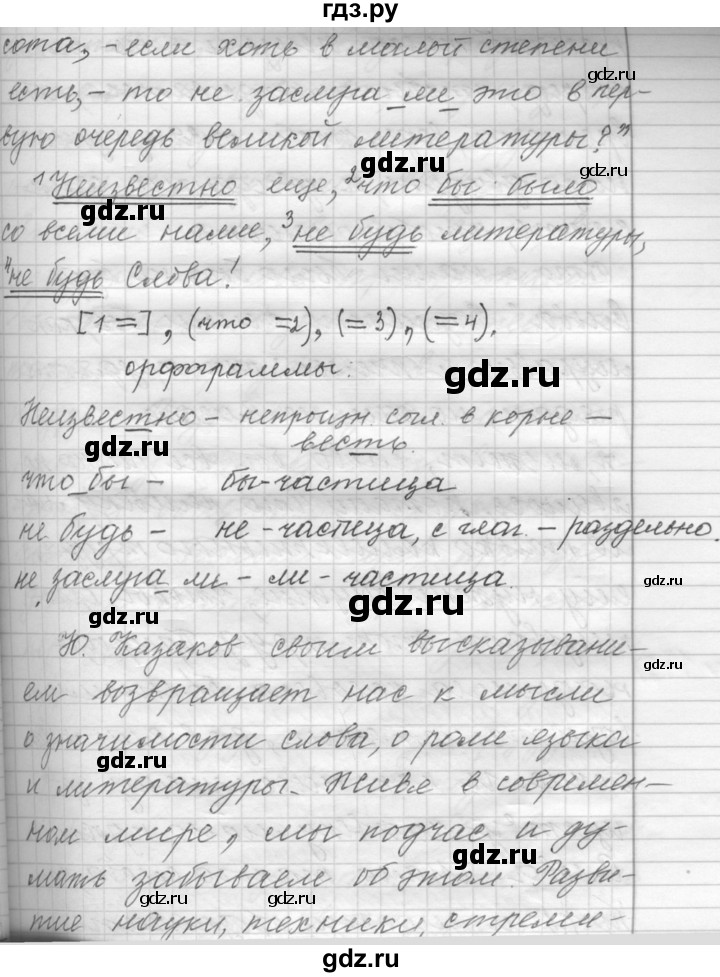 гдз.ру
сота, - если хоть в малой степени
gdz.ru
есть, - то не заслуга ли это в пер-
gdz.ru
вую очередь великой литературы?"
gdz.ru
1 Неизвестно еще, 2 что бы было
gdz.ru
gdz.ru
со всеми нами, 3 не будь литературы,
4 не будь Слова!
gdz.ru
[1 =], (что =2), (= 3), (= 4).
орфограммы:
gdz.ru
Неизвестно - непроизн. согл. в корне -
gdz.ru
весть.
что бы - бы - частица
не будь - не - частица, с глаг. - раздельно.
не заслуга ли - ли - частица.
gdz.ru
gdz.ru
gdz.ru
Ю. Казаков своим высказывани-
gdz.ru
ем возвращает нас к мысли
о значимости слова, о роли языка
gdz.ru
и литературы. Живя в современ-
ном мире, мы подчас и ду-
gdz.ru
мать забываем об этом. Разви-
gdz.ru
gdz.ru
тие науки, техники, стреми-
gdz.ru